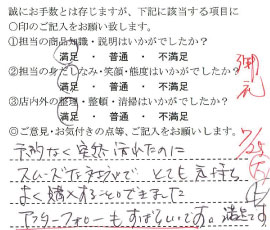 誠にお手数とは存じますが、下記に該当する項目に
○印のご記入をお願い致します。
①担当の商品知識・説明はいかがでしたか?
満足 ・ 普通 ・ 不満足
②担当の身だしなみ・笑顔・態度はいかがでしたか?
満足 ・ 普通 ・ 不満足
③店内外の整理・整頓・清掃はいかがでしたか?
満足 ・ 普通 ・ 不満足
◎ご意見・お気付きの点等、ご記入をお願いします。
御礼
7/25
予約なく突然訪れたのに
スムーズな対応で とても気持ち
よく購入することができました
アフターフォローもすばらしいです。満足です